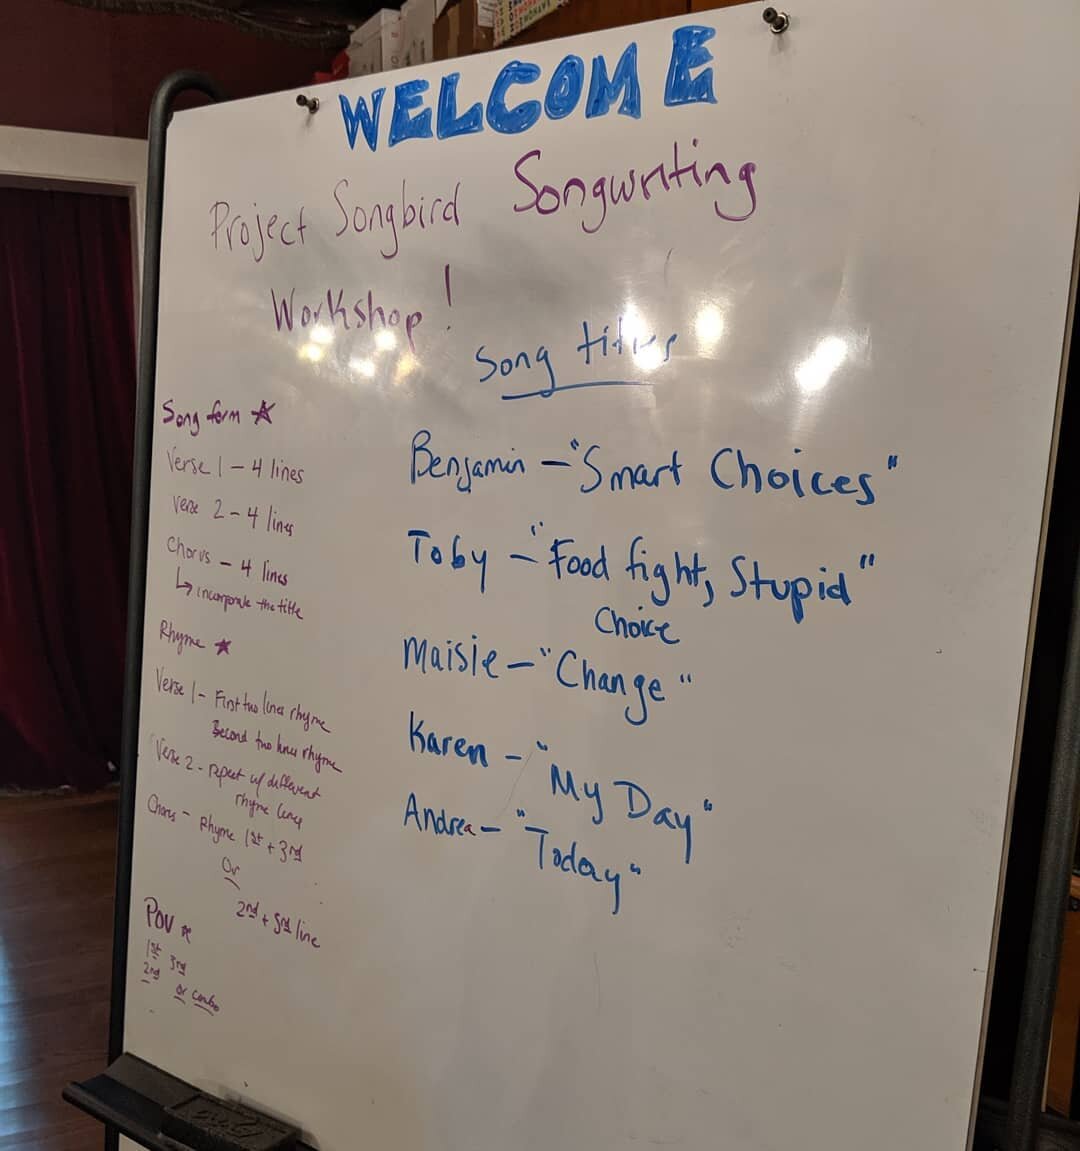 WELCOME
Project Songbird Songwriting
Workshop!
Song titles
Benjamin – "Smart Choices"
Toby – "Food fight, Stupid"
Choice
Maisie – "Change"
Karen – "My Day"
Andrea – "Today"
Song form ☆
Verse 1 – 4 lines
Verse 2 – 4 lines
Chorus – 4 lines
↳ incorporate the title
Rhyme ★
Verse 1 – First two lines rhyme
Second two lines rhyme
Verse 2 – repeat w/ different
rhyme
Chorus – Rhyme 1st + 3rd
Or
2nd + 3rd line
POV ☆
1st 3rd
2nd or combo